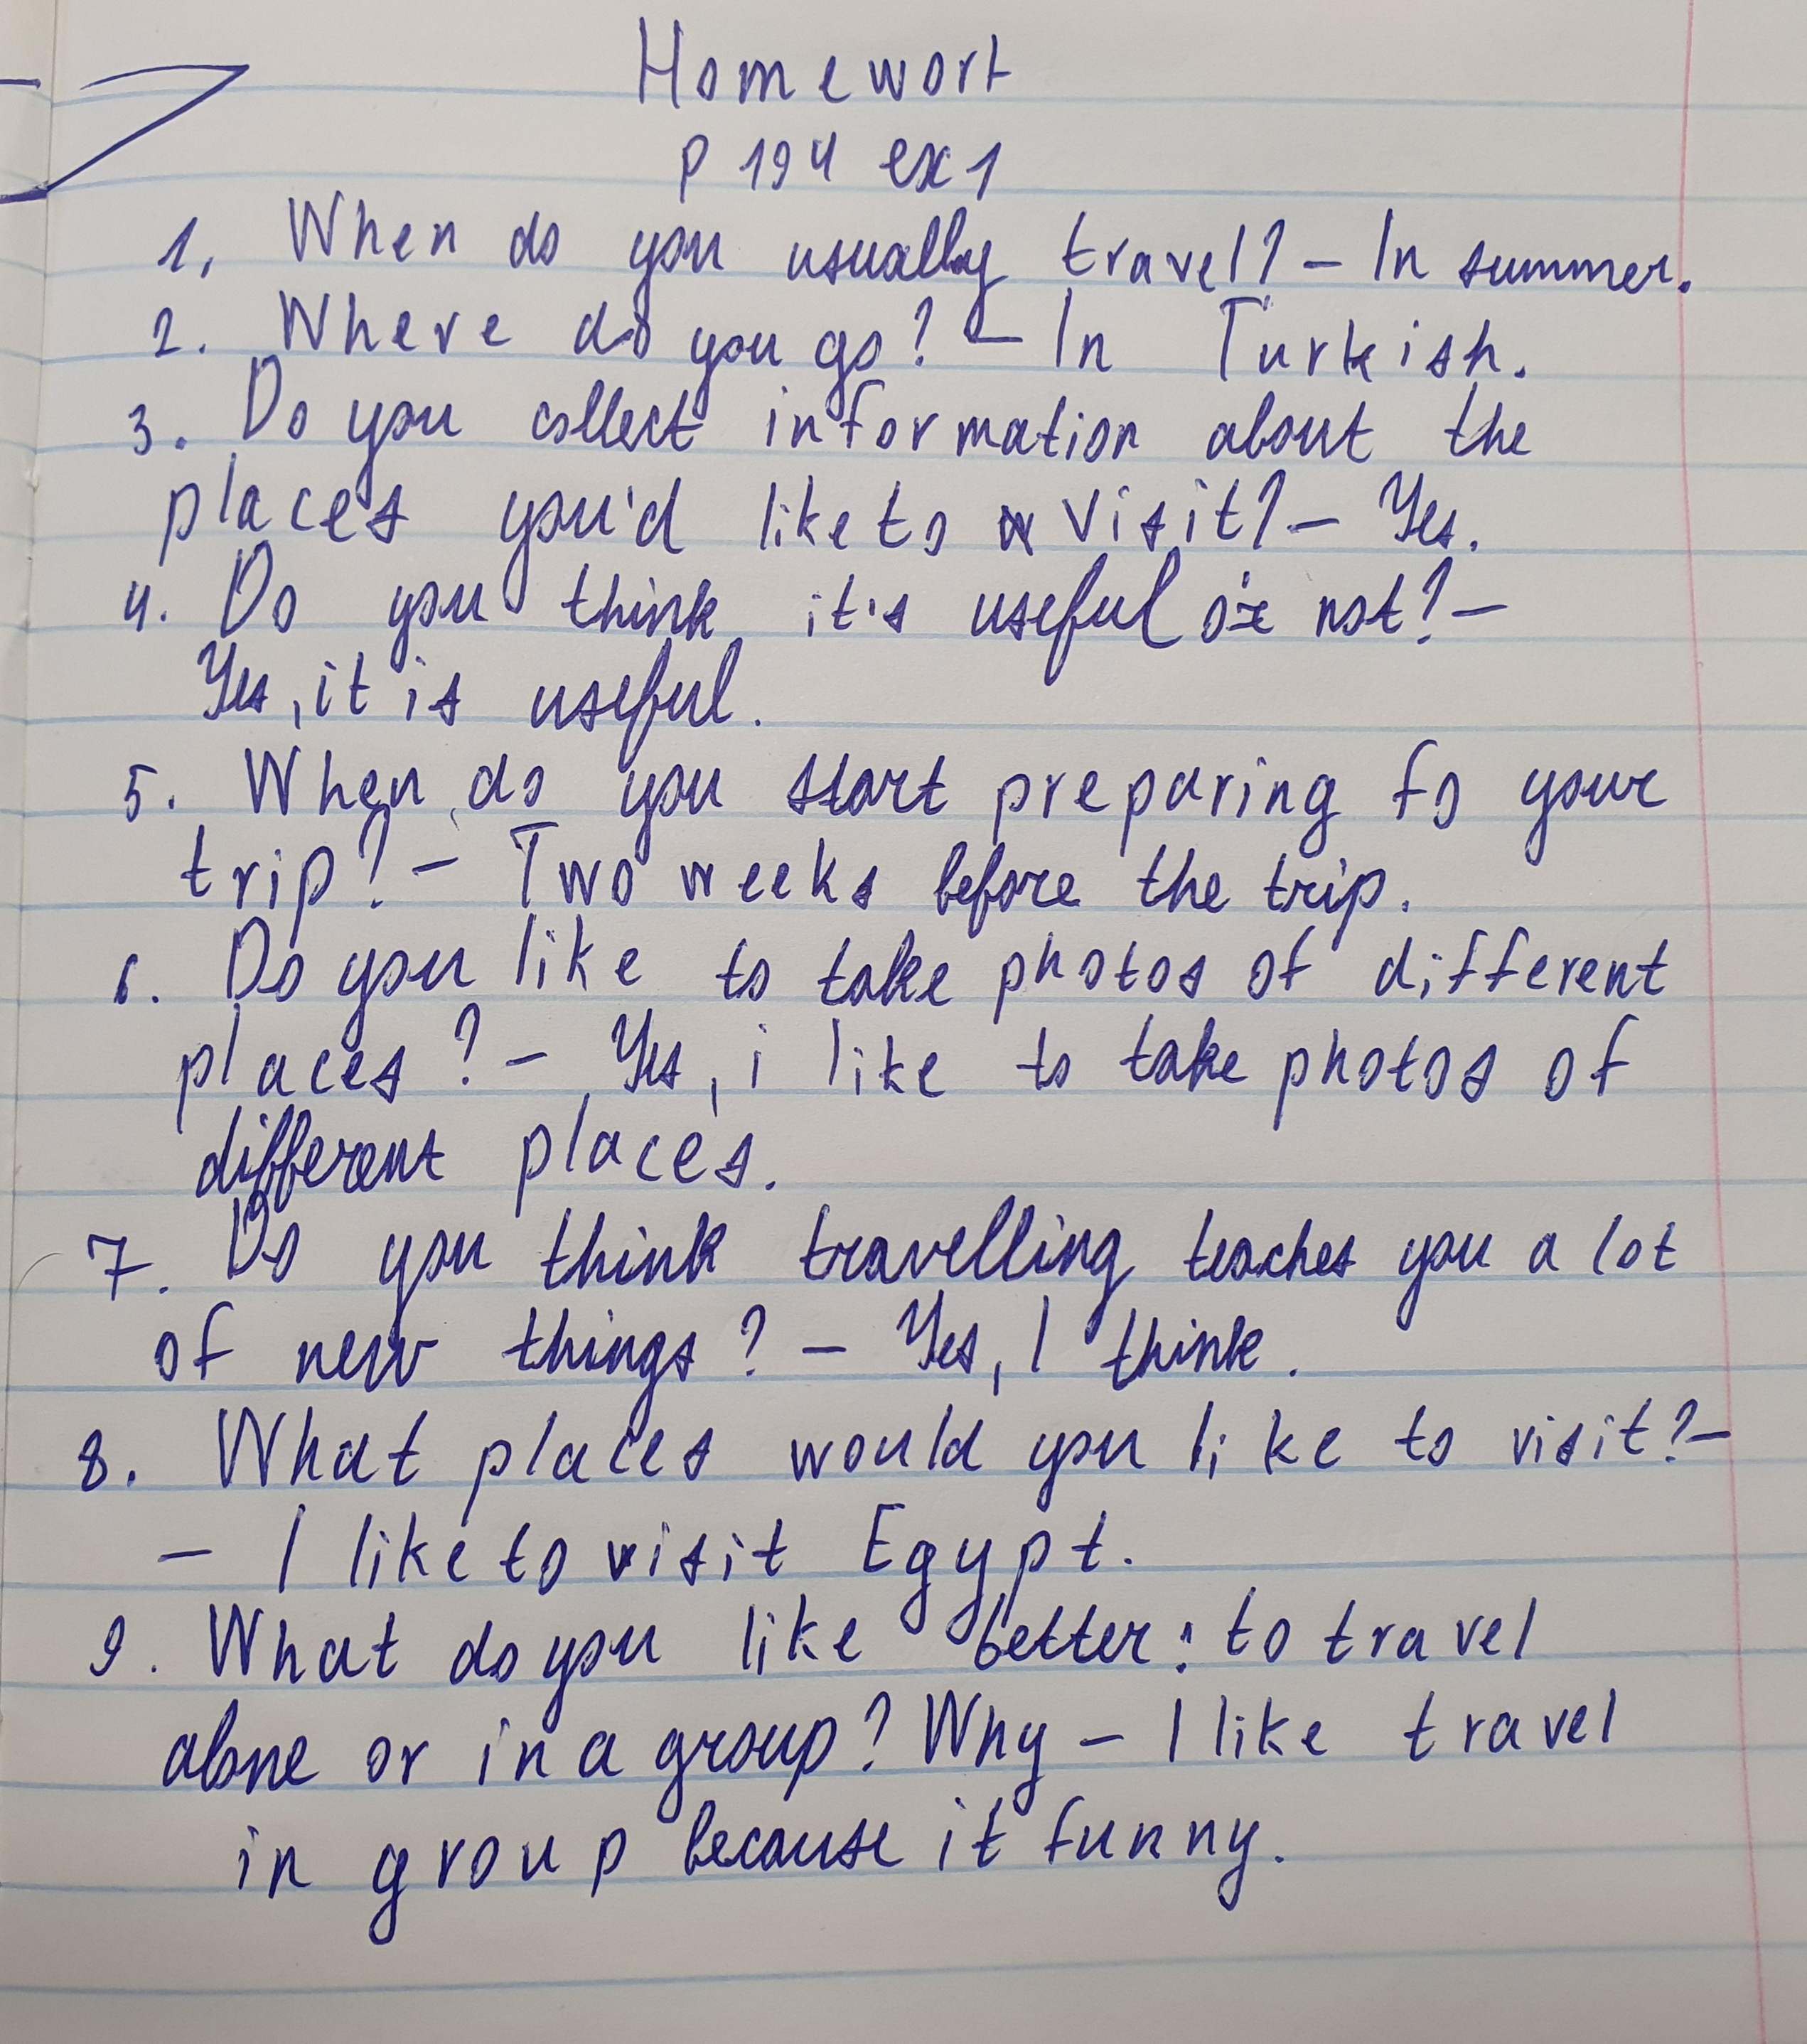 Homewort
p 194 ex 1
1. When do you usually travel? – In summer.
2. Where do you go? – In Turkish.
3. Do you collect information about the
places you'd like to visit? – Yes.
4. Do you think it's useful or not? –
Yes, it is useful.
5. When do you start preparing fo your
trip? – Two weeks before the trip.
6. Do you like to take photos of different
places? – Yes, i like to take photos of
different places.
7. Do you think travelling teaches you a lot
of new things? – Yes, I think.
8. What places would you like to visit? –
– I like to visit Egypt.
9. What do you like better: to travel
alone or in a group? Why – I like travel
in group because it funny.